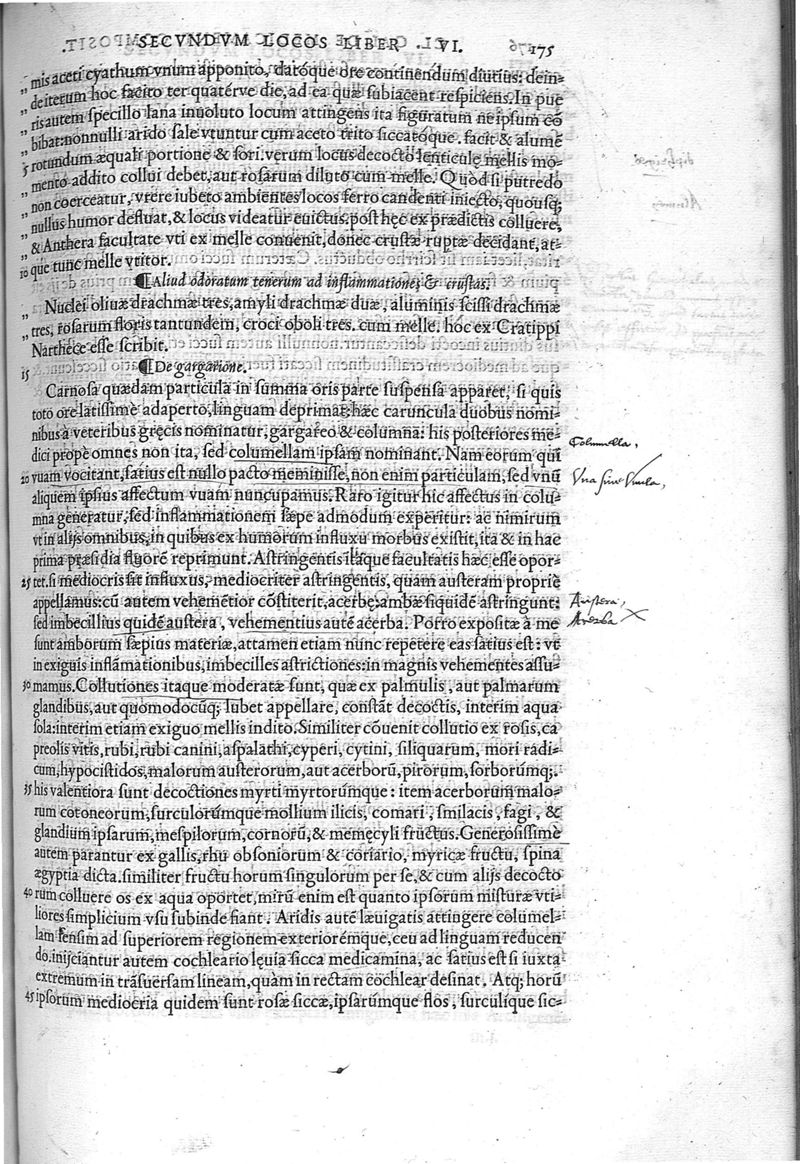 SECVNDVM LOCOS LIBER VI. 175
" mis aceti cyathum vnum apponito, datóque ore continendum diutius: dein-
" de iterum hoc facito ter quatérve die, ad ea quæ subiacent respiciens. In puę
" ris autem specillo lana inuoluto locum attingens ita figuratum ne ipsum cō
" bibat: nonnulli arido sale vtuntur cum aceto trito siccatóque. facit & alumē
5 rotundum æquali portione & fori. verum locus decocto lenticulę mellis mo-
" mento addito collui debet, aut rosarum diluto cum melle. Quòd si putredo
" non coerceatur, vrere iubeto ambientes locos ferro candenti iniecto, quousq;
" nullus humor defluat, & locus videatur euictus. post hęc ex prædictis colluere,
" & Anthera facultate vti ex melle conuenit, donec crustæ ruptæ decidant, at-
10 que tunc melle vtitor.
¶ Aliud odoratum tenerum ad inflammationes & crustas.
" Nuclei oliuæ drachmæ tres, amyli drachmæ duæ, aluminis scissi drachmæ
" tres, rosarum floris tantundem, croci oboli tres. cum melle. hoc ex Cratippi
" Narthece esse scribit.
15 ¶ De gargarione.
Carnosa quædam particula in summa oris parte suspensa apparet, si quis
toto ore latissimè adaperto, linguam deprimat: hæc caruncula duobus nomi-
nibus à veteribus gręcis nominatur, gargareo & columna: his posteriores me-
dici propè omnes non ita, sed columellam ipsam nominant. Nam eorum qui
20 vuam vocitant, satius est nullo pacto meminisse, non enim particulam, sed vnū
aliquem ipsius affectum vuam nuncupamus. Raro igitur hic affectus in colu-
mna generatur, sed inflammationem sæpe admodum experitur: ac nimirum
vt in alijs omnibus, in quibus ex humorum influxu morbus existit, ita & in hac
prima præsidia fluorē reprimunt. Astringentis itaque facultatis hæc esse opor-
25 tet. si mediocris sit influxus, mediocriter astringentis, quam austeram propriè
appellamus: cū autem vehemētior cōstiterit, acerbę: ambæ siquidē astringunt:
sed imbecillius quidē austera, vehementius autē acerba. Porro expositæ à me
sunt amborum sæpius materiæ, attamen etiam nunc repetere eas satius est: vt
in exiguis inflāmationibus, imbecilles astrictiones: in magnis vehementes assu-
30 mamus. Collutiones itaque moderatæ sunt, quæ ex palmulis, aut palmarum
glandibus, aut quomodocūq; lubet appellare, constāt decoctis, interim aqua
sola: interim etiam exiguo mellis indito. Similiter cōuenit collutio ex rosis, ca
preolis vitis, rubi, rubi canini, aspalathi, cyperi, cytini, siliquarum, mori radi-
cum, hypocistidos, malorum austerorum, aut acerborū, pirorum, sorborúmq;.
35 his valentiora sunt decoctiones myrti myrtorúmque: item acerborum malo-
rum cotoneorum, surculorúmque mollium ilicis, comari, smilacis, fagi, &
glandium ipsarum, mespilorum, cornorū, & memęcyli fructus. Generosissimè
autem parantur ex gallis, rhu obsoniorum & coriario, myricæ fructu, spina
ægyptia dicta. similiter fructu horum singulorum per se, & cum alijs decocto
40 rum colluere os ex aqua oportet, mirū enim est quanto ipsorum misturæ vti-
liores simplicium vsu subinde fiant. Aridis autē læuigatis attingere columel-
lam sensim ad superiorem regionem exteriorémque, ceu ad linguam reducen
do. inijciantur autem cochleario lęuia sicca medicamina, ac satius est si iuxta
extremum in trāsuersam lineam, quàm in rectam cochlear desinat. Atq; horū
45 ipsorum mediocria quidem sunt rosæ siccæ, ipsarúmque flos, surculíque sic-
Columella,
Vua siue Vuula,
Austera,
Acerba